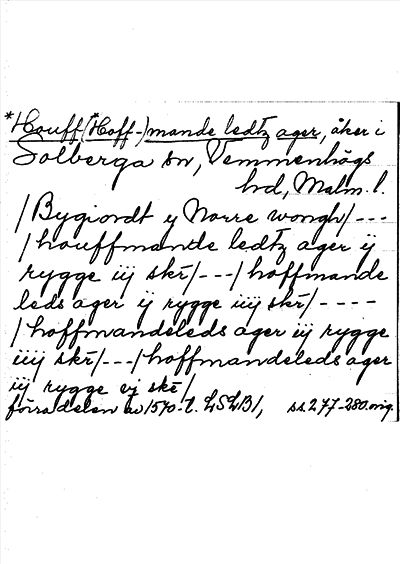 *Houff(*Hoff-)mande ledtz ager, åker i
Solberga sn, Vemmenhögs
hd, Malm. l.
/Bygiordt y Norre wongh/---
/houffmande ledtz ager ij
rygge iij skr/---/hoffmande
leds ager ij rygge iiij skr/----
/hoffmandeleds ager iij rygge
iiij skr/---/hoffmandeleds ager
iij rygge vj skr/
förra delen av 1570-t. LSLB1, ss. 277-280. orig.